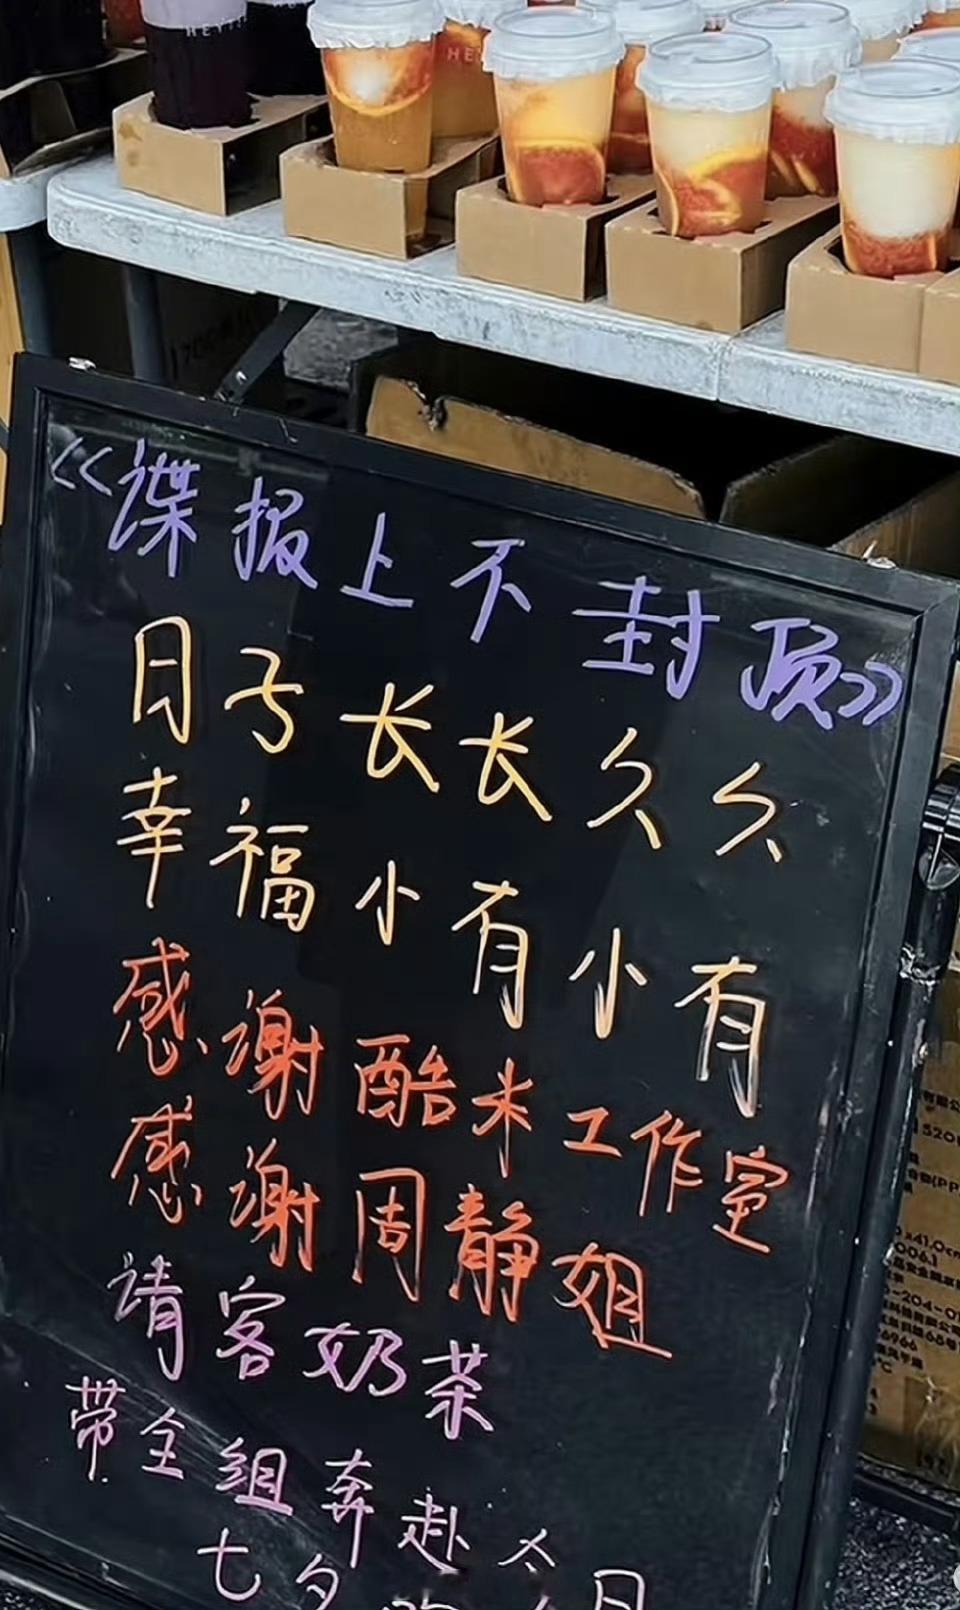 HEYT
HE
《谍报上不封顶》
日子长长久久
幸福小有小有
感谢酷米工作室
感谢周静姐
请客奶茶
带全组奔赴今
七夕
日